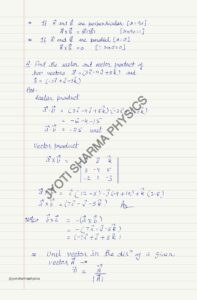 → If a⃗ and b⃗ are perpendicular
a⃗ x b⃗ =
→ If a⃗ and b⃗ are parallel
a⃗ x b⃗ = 0
Q. Find the scalar and vector product of
two vectors a⃗ = (3î - 4ĵ + 5k̂) and
b⃗ = (-2î + ĵ - 3k̂)
Ans-
Scalar product
a⃗ . b⃗ = (3î - 4ĵ + 5k̂) . (-2î + ĵ - 3k̂)
= -6 - 4 - 15
a⃗ . b⃗ = -25 unit
Vector product
a⃗ x b⃗ = | î ĵ k̂ |
| 3 -4 5 |
| -2 1 -3 |
a⃗ x b⃗ = î (12 - 5) - ĵ (-9 + 10) + k̂ (3 - 8)
a⃗ x b⃗ = (7î - ĵ - 5k̂) Ans
b⃗ x a⃗ = -(a⃗ x b⃗)
= -(7î - ĵ - 5k̂)
= (-7î + ĵ + 5k̂)
Unit vector in the dirⁿ of a given
vector A⃗ →
= A⃗
|A⃗|
JYOTI SHARMA PHYSICS
@jyotisharmaphysics